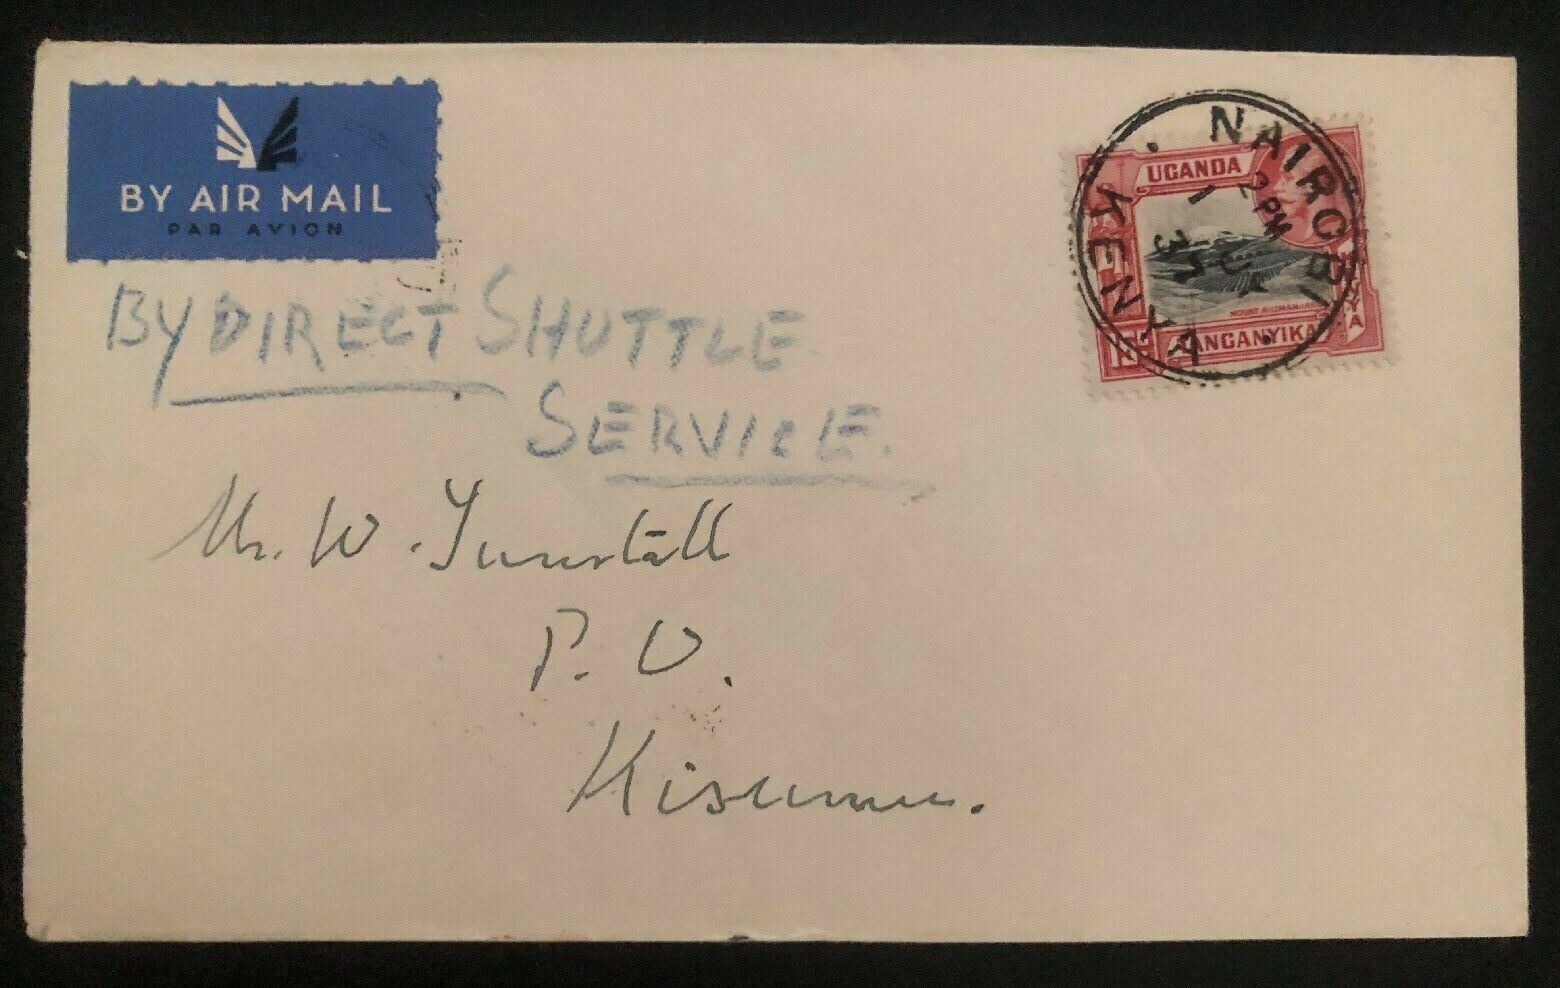 BY AIR MAIL
PAR AVION
BY DIRECT SHUTTLE
SERVICE.
Mr. W. Tunstall
P. O.
Kisumu.
UGANDA
MOUNT KILIMANJARO
TANGANYIKA
NAIROBI
2 PM
1
KENYA